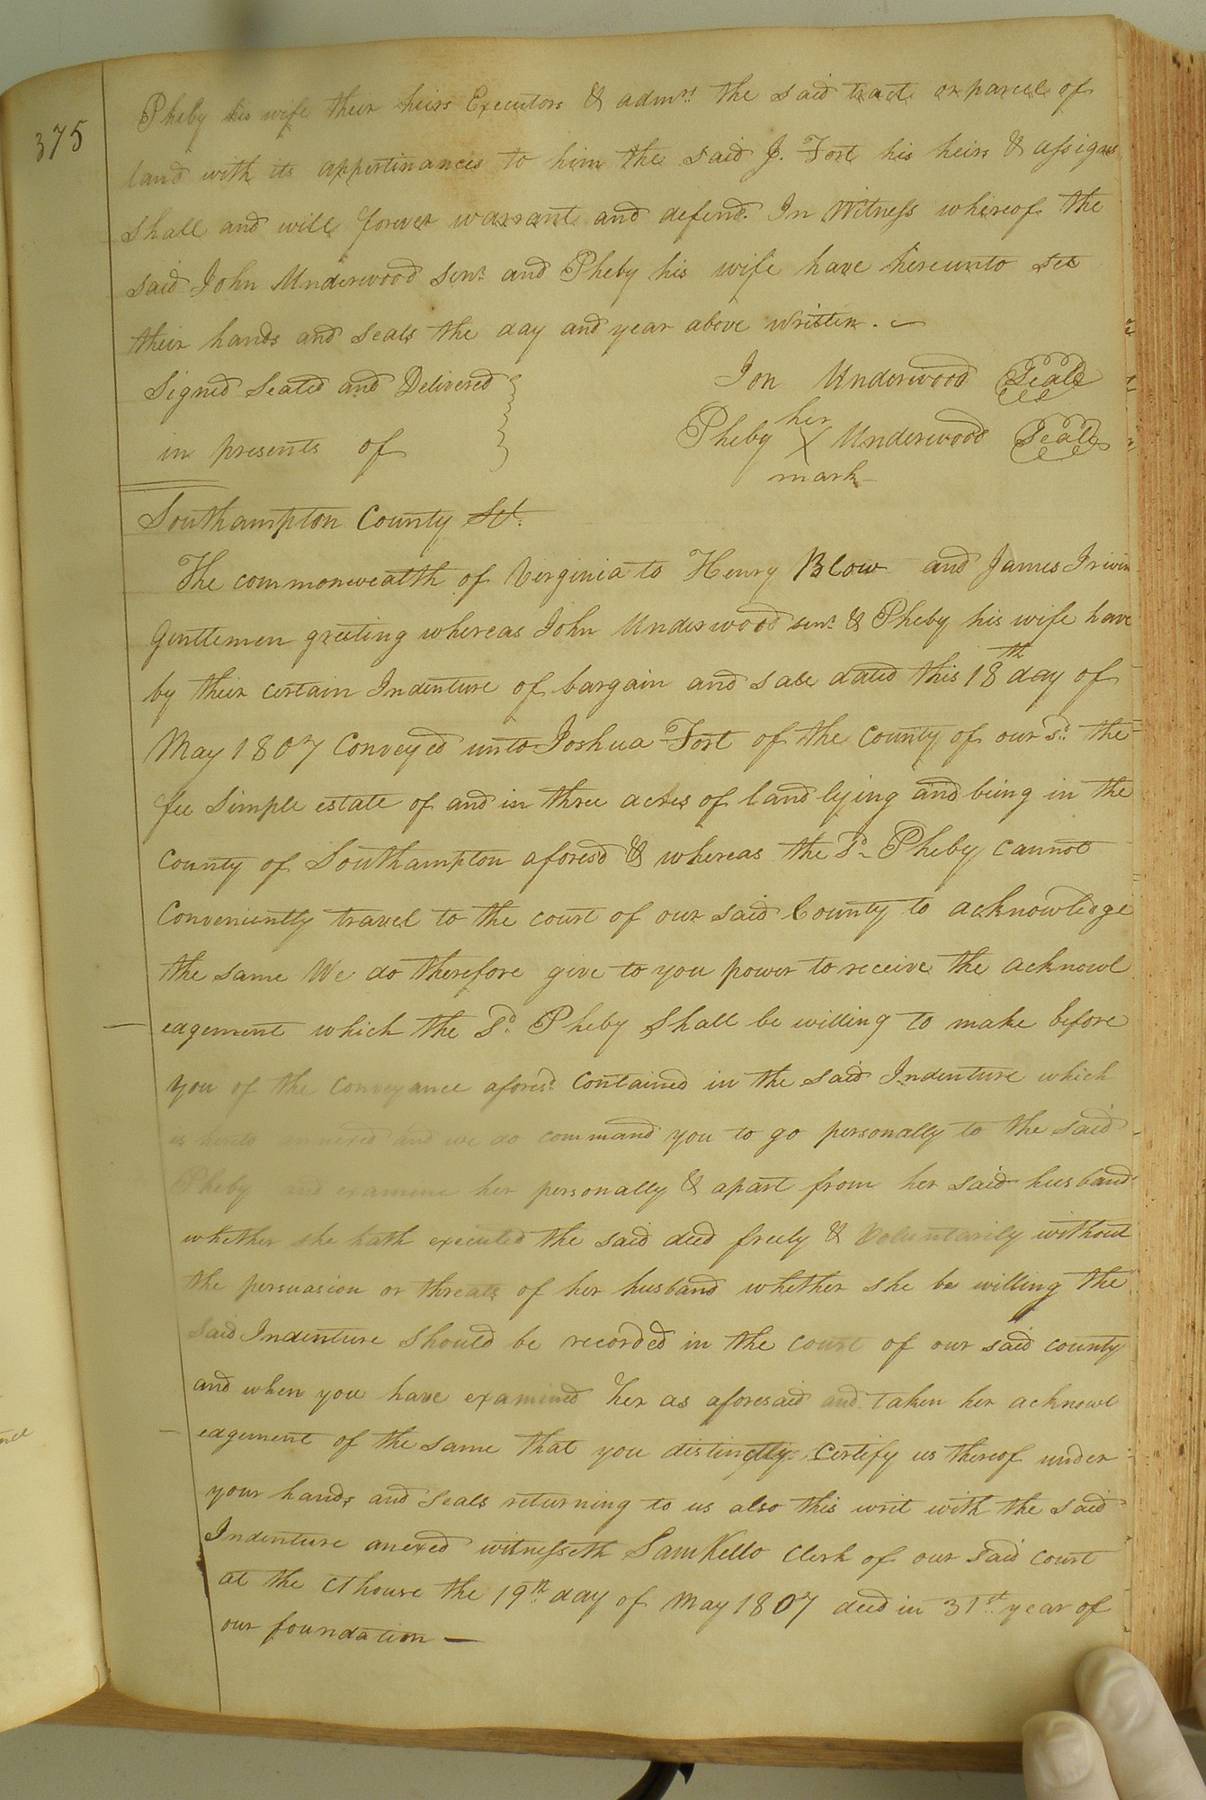 375
Pheby his wife their heirs Executors & admrs the said tract or parcel of
land with its appertinances to him the said J. Fort his heirs & assigns
shall and will forever warrant and defend. In Witness whereof the
said John Underwood senr and Pheby his wife have hereunto set
their hands and seals the day and year above written. —
Signed Sealed and Delivered } Jon Underwood Seal
her
in presents of Pheby X Underwood Seal
mark
Southampton County Sct.
The commonwealth of Virginia to Henry Blow and James Irwin
Gentlemen greeting whereas John Underwood senr & Pheby his wife have
by their certain Indenture of bargain and sale dated this 18th day of
May 1807 Conveyed unto Joshua Fort of the County of our sd. the
fee simple estate of and in three acres of land lying and being in the
County of Southampton aforesd & whereas the Sd Pheby cannot
Conveniently travel to the court of our said County to acknowledge
the same We do therefore give to you power to receive the acknowl
edgement which the Sd. Pheby shall be willing to make before
you of the Conveyance aforesd. Contained in the said Indenture which
is hereto annexed and we do command you to go personally to the said
Pheby and examine her personally & apart from her said husband
whether she hath executed the said deed freely & Voluntarily without
the persuasion or threats of her husband whether she be willing the
said Indenture should be recorded in the court of our said county
and when you have examined her as aforesaid and taken her acknowl
edgement of the same that you distinctly certify us thereof under
your hands and seals returning to us also this writ with the said
Indenture anexed witnesseth Sam Kello Clerk of our said court
at the Cthouse the 19th day of May 1807 deed in 31st year of
our foundation —